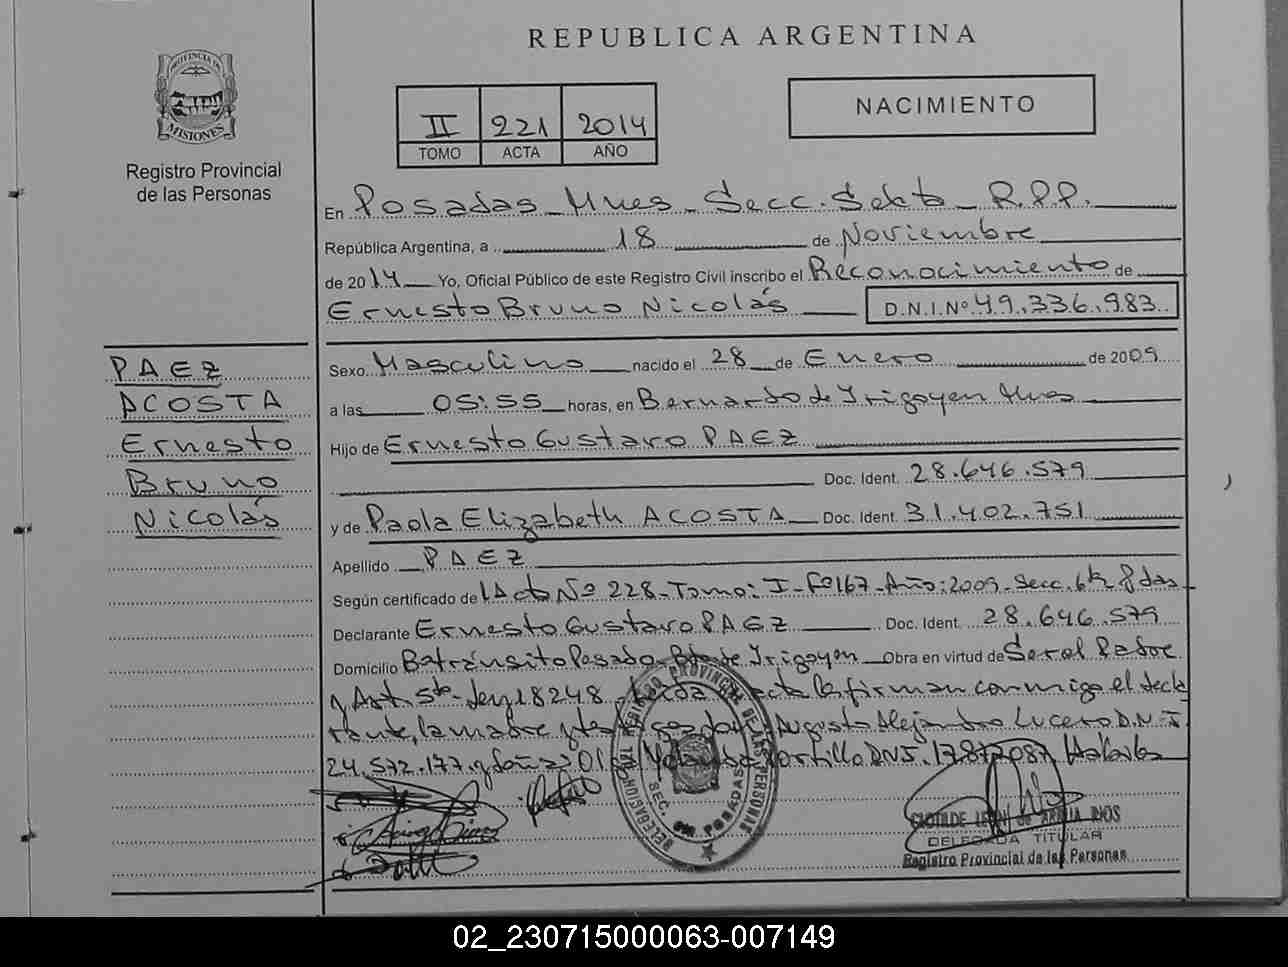 REPUBLICA ARGENTINA
PROVINCIA DE
MISIONES
Registro Provincial
de las Personas
II 221 2014
TOMO ACTA AÑO
NACIMIENTO
En Posadas Mnes Secc. Sexta R.P.P.
República Argentina, a 18 de Noviembre
de 2014 Yo, Oficial Público de este Registro Civil inscribo el Reconocimiento de
Ernesto Bruno Nicolás D.N.I.Nº 49.336.983
PAEZ
ACOSTA
Ernesto
Bruno
Nicolás
Sexo Masculino nacido el 28 de Enero de 2009
a las 05:55 horas, en Bernardo de Irigoyen Mnes
Hijo de Ernesto Gustavo PAEZ
Doc. Ident. 28.646.579
y de Paola Elizabeth ACOSTA Doc. Ident. 31.402.751
Apellido PAEZ
Según certificado de Acta Nº 228 - Tomo: I - Fº 167 - Año: 2009 - Secc. 6ta Pdas
Declarante Ernesto Gustavo PAEZ Doc. Ident. 28.646.579
Domicilio Bº tránsito Pesado Bdo de Irigoyen Obra en virtud de Ser el Padre
y Art. 5to - Ley 18248 - Leída el acta la firman conmigo el decla
rante, la madre y testigos don Augusto Alejandro Lucero D.N.I
24.572.177 y doña Olga Yolanda Portillo DNI. 17877087
REGISTRO PROVINCIAL DE LAS PERSONAS
DELEGACION
SEC. 6ta POSADAS
CLOTILDE
DELEGADA TITULAR
Registro Provincial de las Personas
02_230715000063-007149